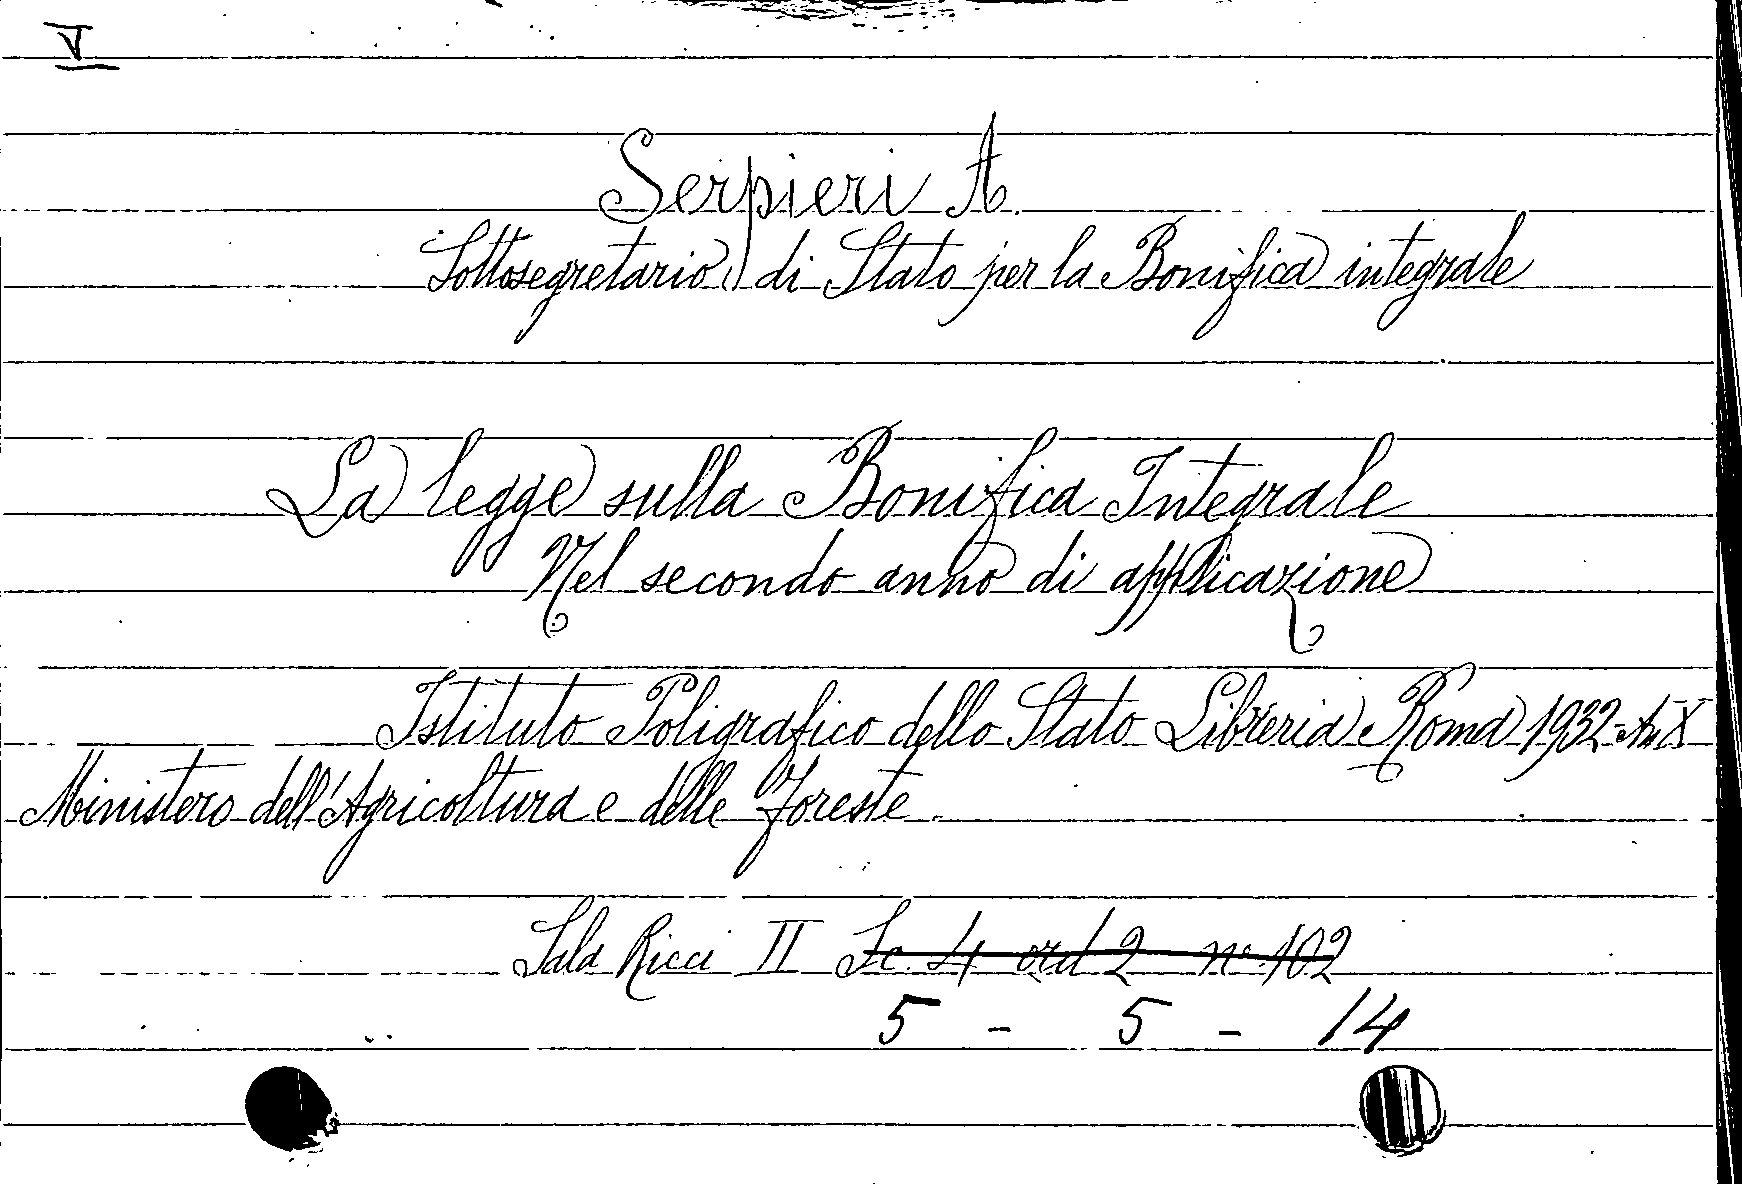 V
Serpieri A.
Sottosegretario di Stato per la Bonifica integrale
La legge sulla Bonifica Integrale
Nel secondo anno di applicazione
Istituto Poligrafico dello Stato Libreria Roma 1932-An X
Ministero dell'Agricoltura e delle Foreste.
Sala Ricci II Sc. 4 ord 2 n° 102
5 - 5 - 14